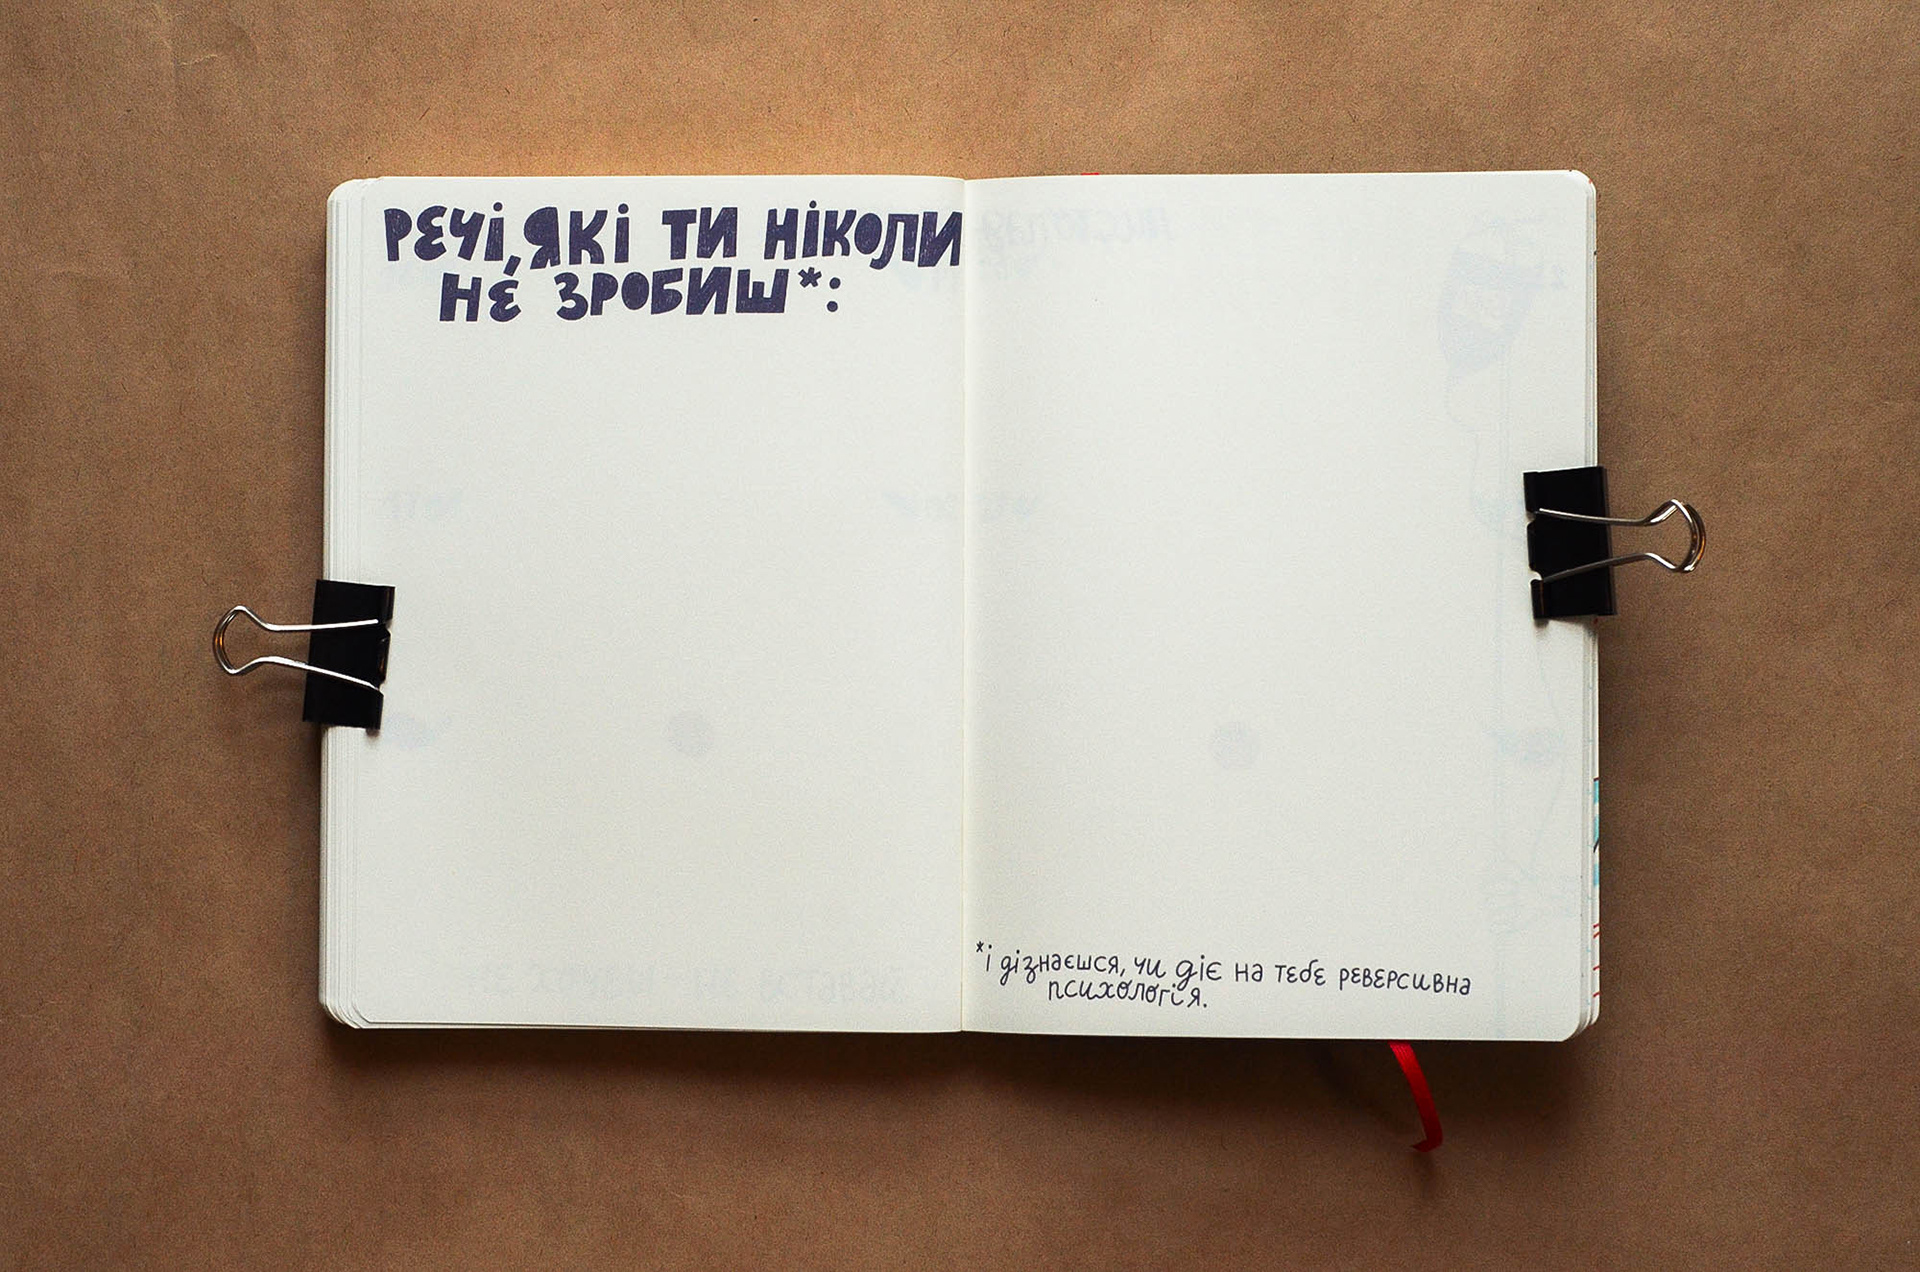 РЕЧІ, ЯКІ ТИ НІКОЛИ
НЕ ЗРОБИШ*:
*і дізнаєшся, чи діє на тебе реверсивна
психологія.